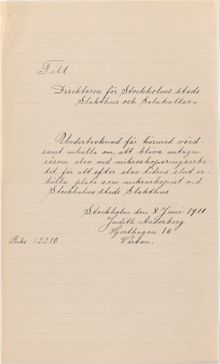 Till
Direktören för Stockholms stads
Slakthus och Saluhallar.
Undertecknad får härmed vörd-
samt anhålla om, att bliva antagen
såsom elev vid mikroskoperingsarbe-
tet för att efter elevtidens slut er-
hålla plats som mikroskopist vid
Stockholms stads Slakthus.
Stockholm den 8 Juni 1911
Judith Anderberg
Hjorthagen 16
Värtan.
Riks. 12210